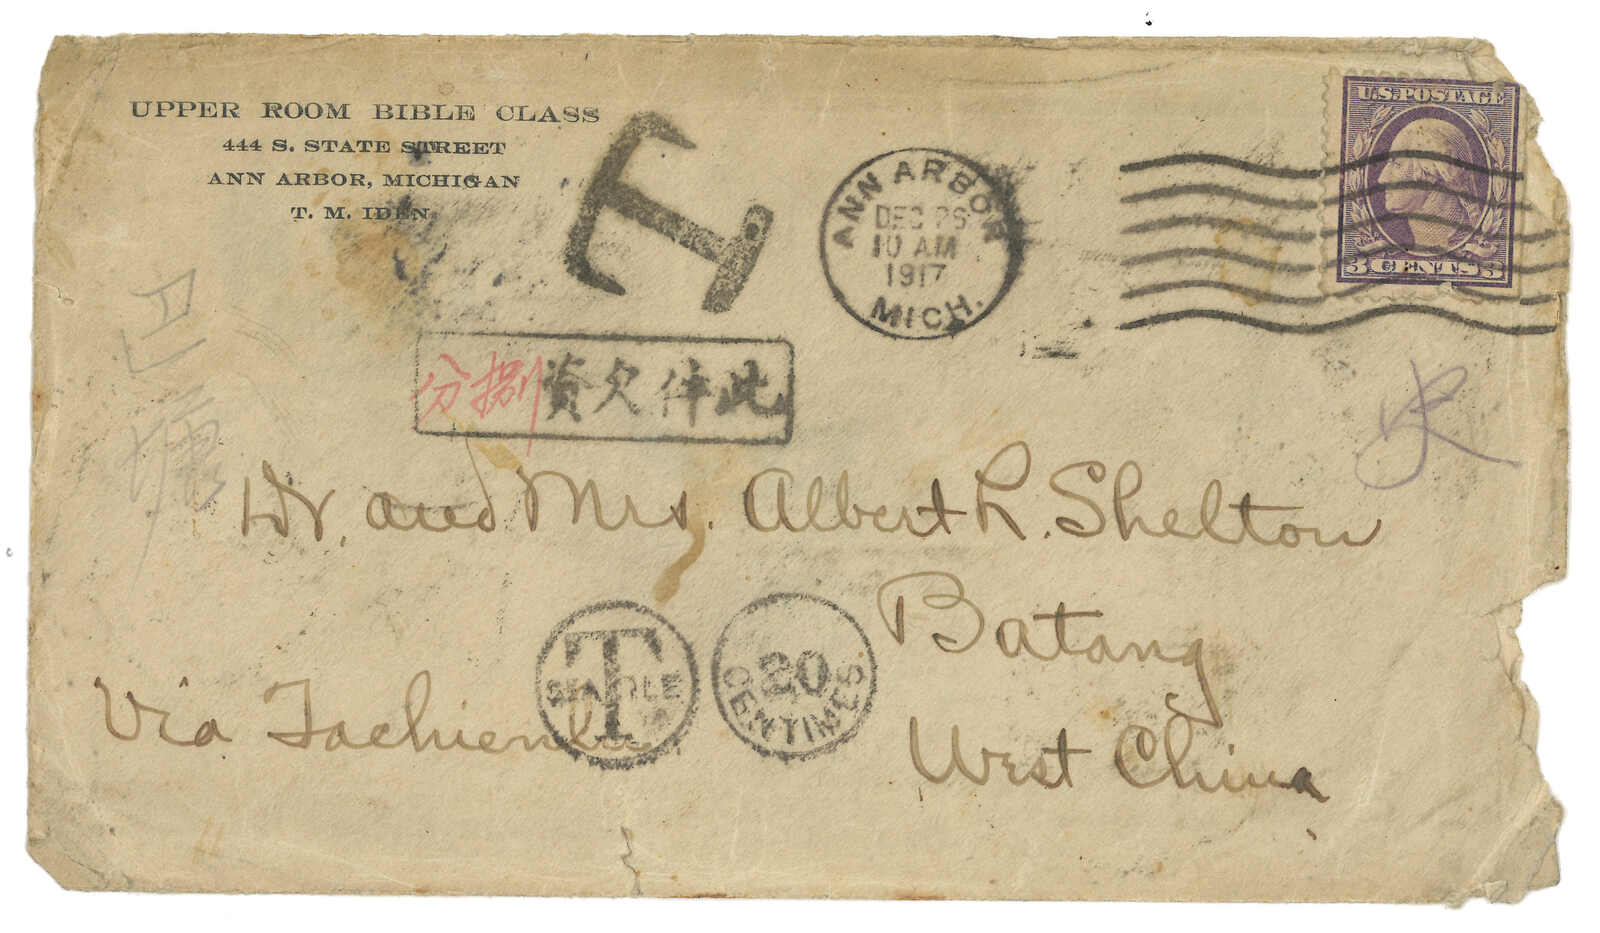 UPPER ROOM BIBLE CLASS
444 S. STATE STREET
ANN ARBOR, MICHIGAN
T. M. IDEN
T
ANN ARBOR
DEC 26
10 AM
1917
MICH.
U.S. POSTAGE
3 CENTS 3
此件欠资捌分
巴塘
史
Dr. and Mrs. Albert L. Shelton
Batang
West China
Via Tachienlu
T
SEATTLE
20
CENTIMES